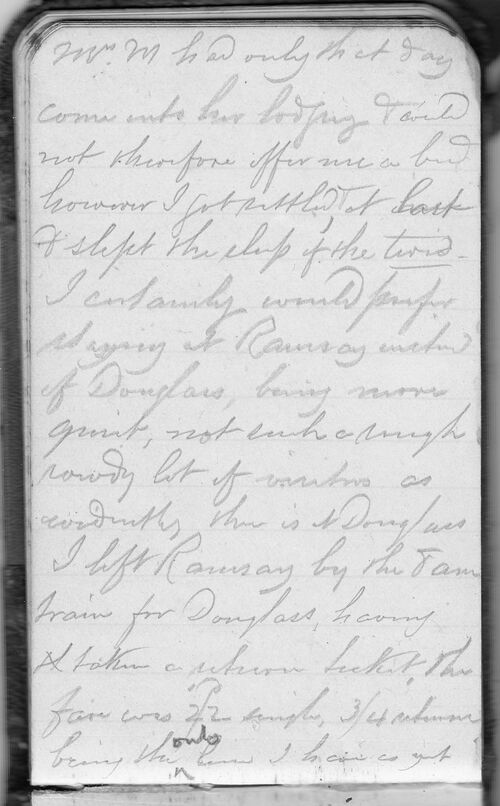 Mrs M had only that day
come into her lodging & could
not therefore offer me a bed
however I got settled, at last
& slept the sleep of the tired.
I certainly would prefer
staying at Ramsay instead
of Douglass, being more
quiet, not such a rough
rowdy lot of visitors as
evidently there is at Douglass
I left Ramsay by the 8 am
train for Douglass, having
taken a return ticket, the
fare was 2/2 single, 3/4 return
being the only line I have as yet